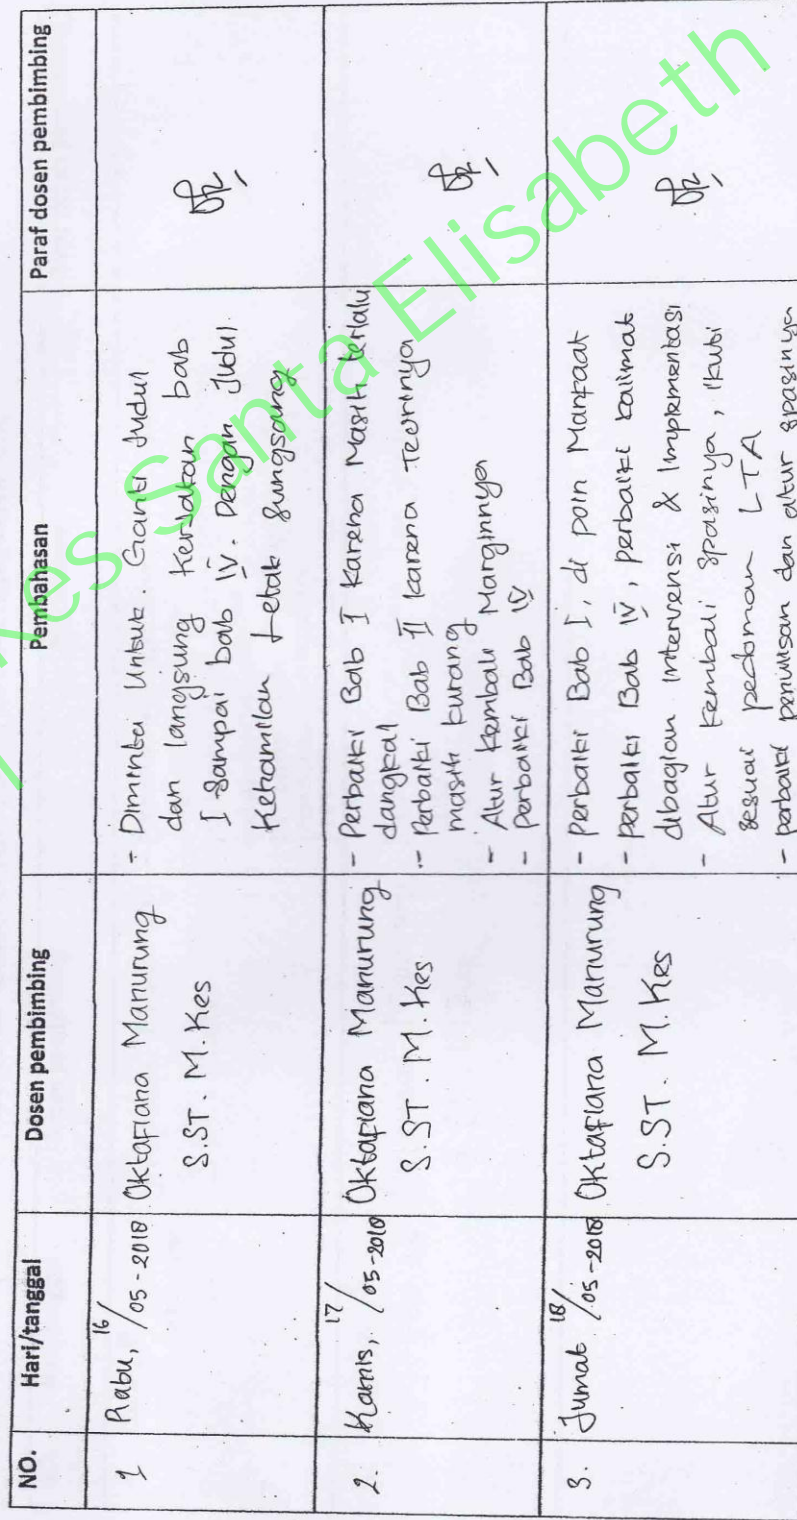 NO.
Hari/tanggal
Dosen pembimbing
Pembahasan
Paraf dosen pembimbing
1
Rabu, 16/05-2018
Oktafiana Manurung
S.ST. M.Kes
- Diminta Untuk. Ganti Judul
dan langsung Kerjakan bab
I sampai bab IV. Dengan Judul
Kehamilan Letak Sungsang
2.
Kamis, 17/05-2018
Oktafiana Manurung
S.ST. M.Kes
- Perbaiki Bab I Karena Masih terlalu
dangkal
- Perbaiki Bab II karena Teorinya
masih kurang
- Atur Kembali Marginnya
- Perbaiki Bab IV
3.
Jumat 18/05-2018
Oktafiana Manurung
S.ST. M.Kes
- Perbaiki Bab I, di poin Manfaat
- Perbaiki Bab IV, perbaiki kalimat
dibagian intervensi & Implementasi
- Atur Kembali Spasinya, ikuti
sesuai pedoman LTA
- perbaiki penulisan dan atur spasinya
kes Santa Elisabeth